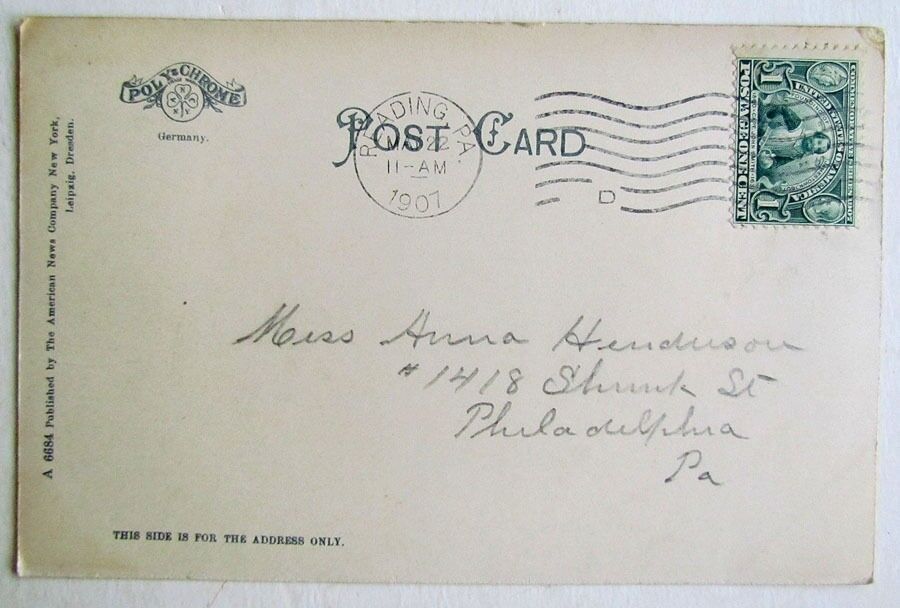 POLY-CHROME
Germany.
POST CARD
READING, PA.
MAY 22
11-AM
1907
D
UNITED STATES OF AMERICA
POSTAGE ONE CENT
1 1
A 6684 Published by The American News Company New York,
Leipzig, Dresden.
Miss Anna Henderson
# 1418 Shunk St
Philadelphia
Pa
THIS SIDE IS FOR THE ADDRESS ONLY.